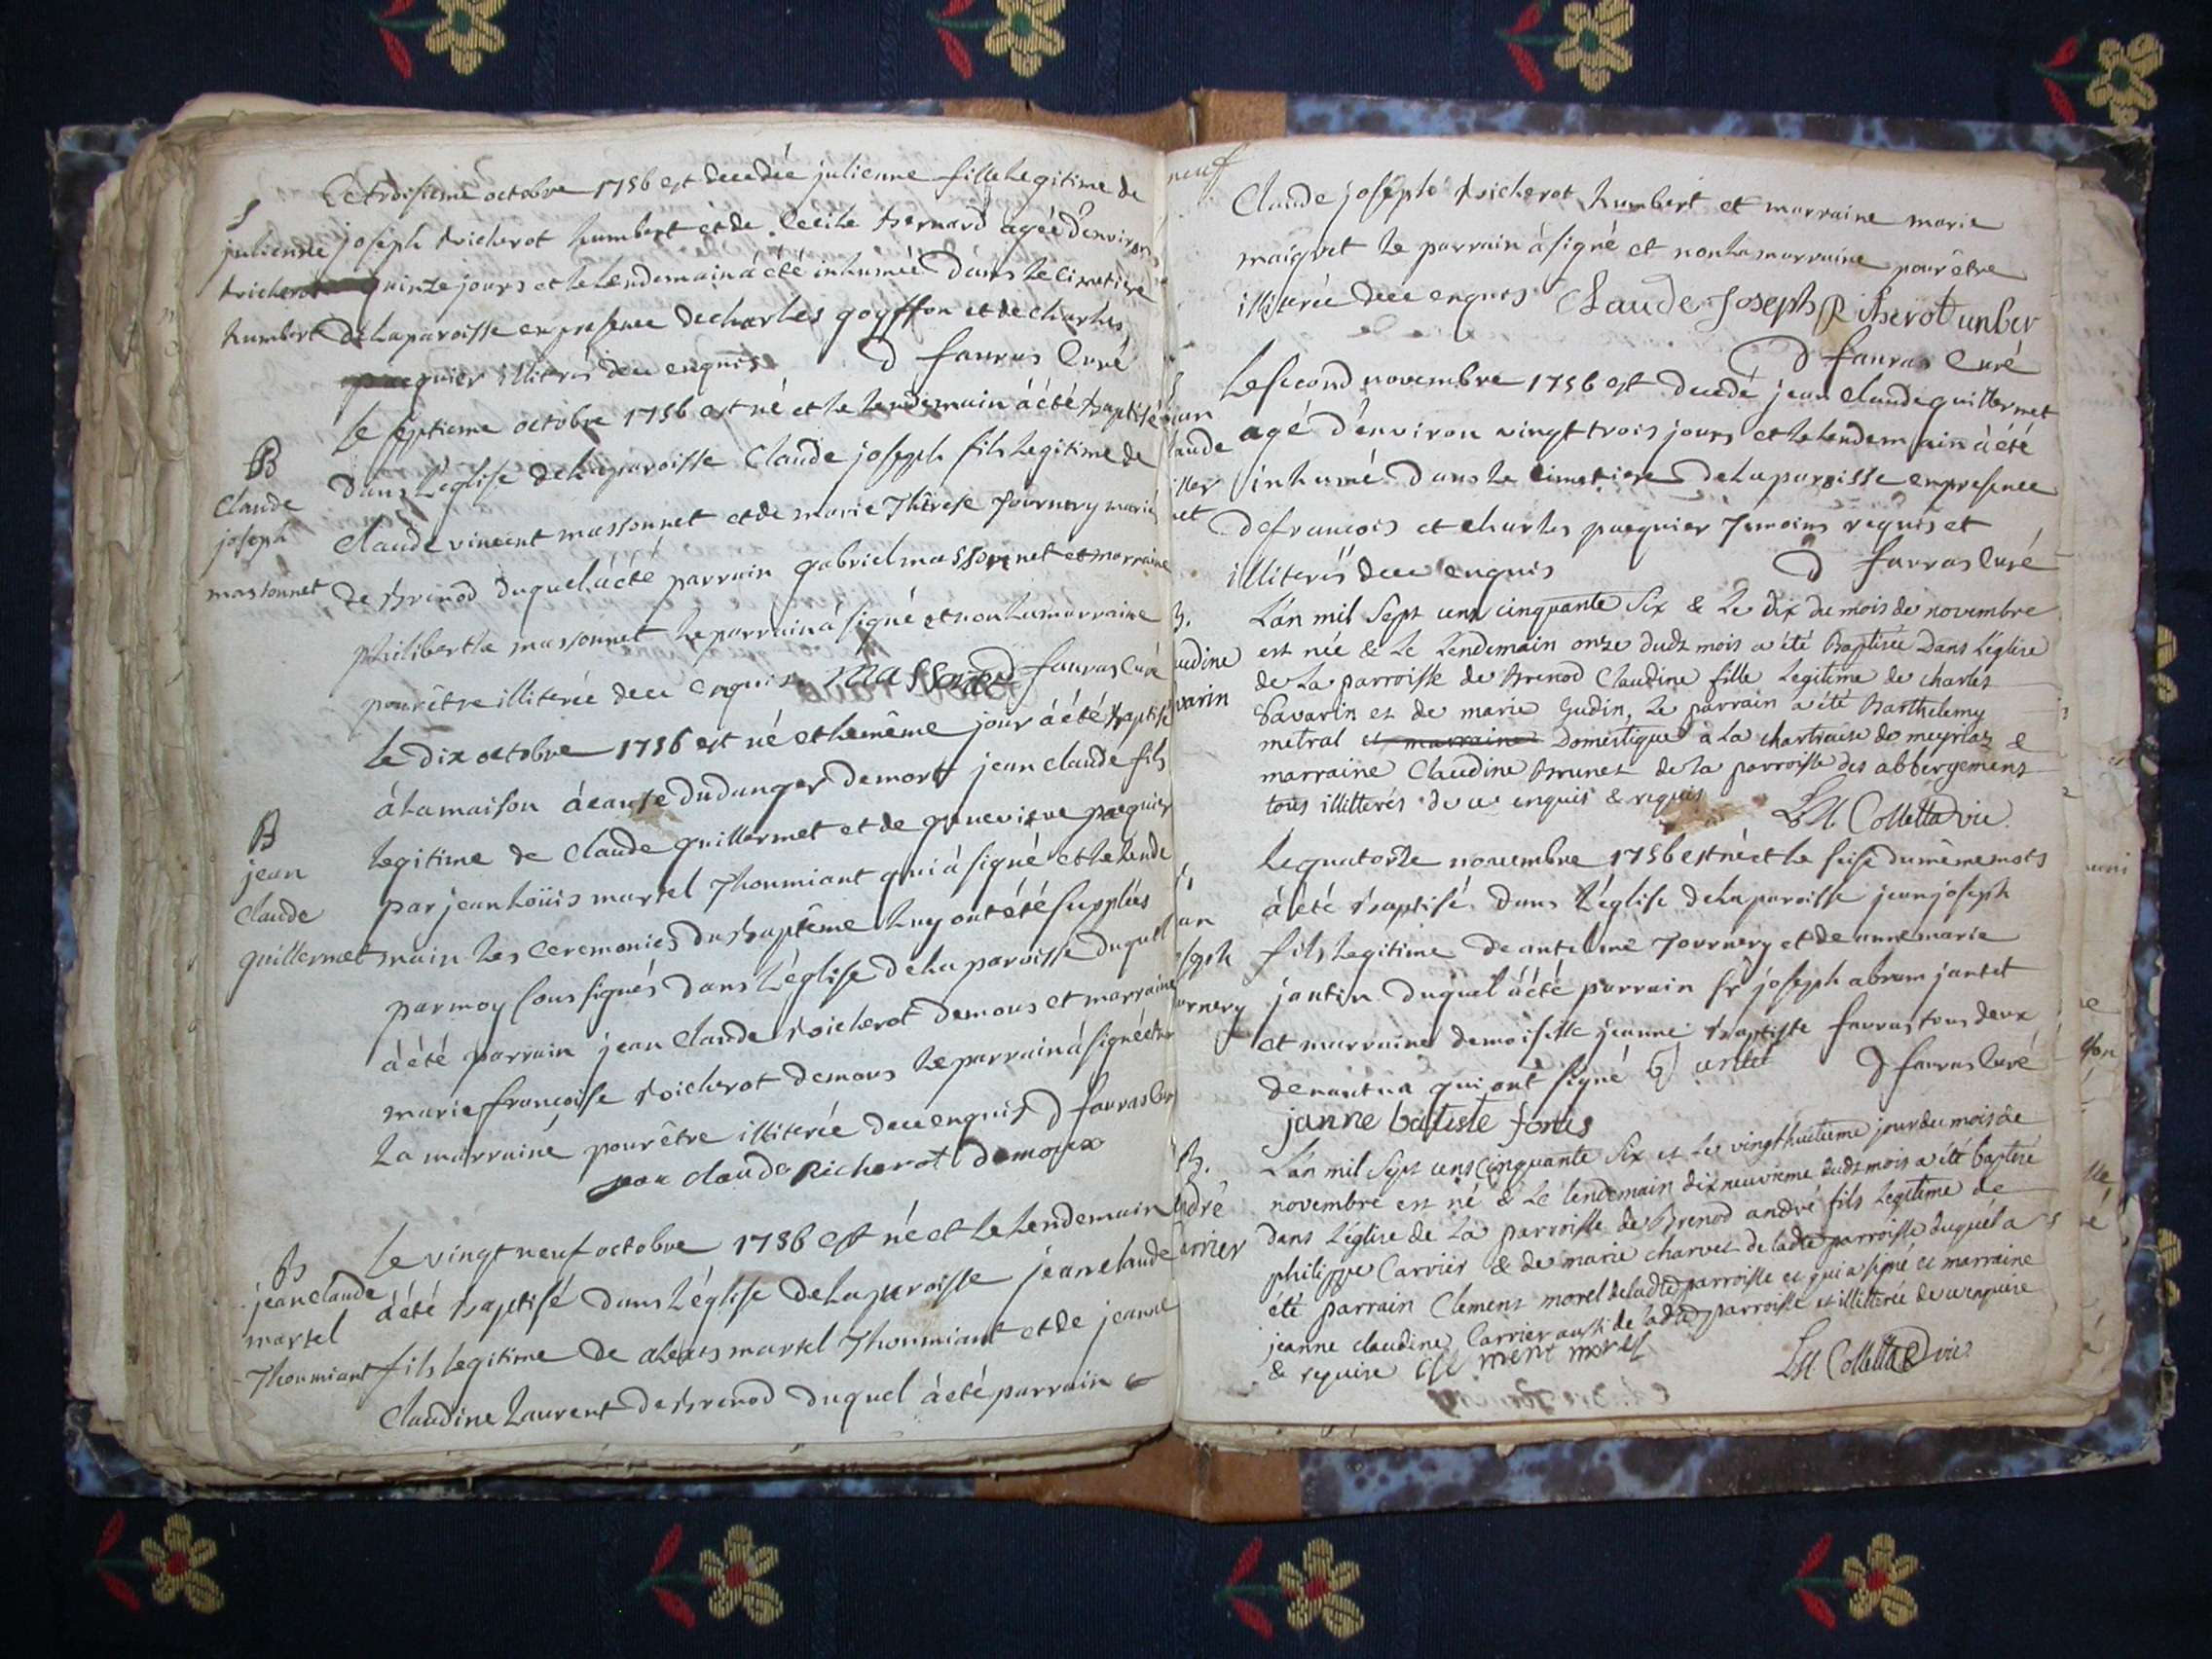 Le troisieme octobre 1756 est decedée julienne fille legitime de
S
julienne
richerot
humbert
joseph richerot humbert et de Cecile bernard agée d'environ
quinze jours et le lendemain à été inhumée dans le cimetiere
de la paroisse en presence de charles goyffon et de charles
pacquier illiterés de ce enquis D favras Curé
B
Claude
joseph
massonnet
Le septieme octobre 1756 est né et le lendemain à été baptisé
dans l'eglise de la paroisse Claude joseph fils legitime de
Claude vincent massonnet et de marie Thérese Tournery mariés
de brenod duquel à été parrain gabriel massonnet et marraine
philiberte massonnet le parrain à signé et non la marraine
pour être illiterée de ce enquise massonet D favras Curé
B
jean
Claude
guillermet
Le dix octobre 1756 est né et le même jour à été baptisé
à la maison à cause du danger de mort jean claude fils
legitime de Claude guillermet et de genevieve pacquier
par jean Loüis martel Thoumiant qui à signé et le lende
main les ceremonies du baptême luy ont été supplées
par moy sous signés dans l'église de la paroisse duquel
à été parrain jean Claude richerot demous et marraine
marie francoise richerot demous le parrain à signé et non
la marraine pour être illiterée de ce enquis D favras Cur
jean claude Richerot demoux
B
jean claude
martel
Thoumiant
Le vingt neuf octobre 1756 est né et le lendemain
à été baptisé dans l'église de la paroisse jean claude
fils legitime de alexis martel Thoumiant et de jeanne
Claudine Laurent de brenod duquel à été parrain
neuf
Claude joseph richerot humbert et marraine marie
maigret le parrain à signé et non la marraine pour être
illiterée de ce enquis Claude Joseph Richerot unber
D favras Curé
ean
laude
iller
et
Le second novembre 1756 est decedé jean Claude guillermet
agé d'environ vingt trois jours et le lendemain à été
inhumé dans le cimetiere de la paroisse en presence
de francois et charles pacquier Temoins requis et
illiterés de ce enquis D favras Curé
B.
udine
varin
L'an mil Sept cent cinquante Six & Le dix du mois de novembre
est née & Le Lendemain onze dudt mois a été Baptisée Dans L'église
de La parroisse de Brenod Claudine fille Legitime de charles
Savarin et de marie Gudin, Le parrain a été Barthelemy
metral et marraine Domestique a La chartreuse de meyriaz &
marraine Claudine Brunet de la parroisse des abbergemens
tous illitterés de ce enquis & requis L.M. Colletta vic.
an
oseph
urnery
Le quatorze novembre 1756 est né et le seise du même mois
à été baptisé dans l'église de la paroisse jean joseph
fils legitime de antelme Tournery et de anne marie
jantin duquel à été parrain Sr joseph abram jantet
et marraine demoiselle jeanne baptiste favras tous deux
de nantua qui ont signé D favras Curé
janne batiste
B.
ndré
arrier
L'an mil Sept cent Cinquante Six et Le vingt huitieme jour du mois de
novembre est né & Le lendemain dix neuvieme dudt mois a été baptisé
dans L'église de La parroisse de Brenod andré fils Legitime de
philippe Carrier & de marie charvet de ladte parroisse duquel a
été parrain Clement morel de ladte parroisse et qui a signé et marraine
jeanne claudine Carrier aussi de ladte parroisse et illitterée de ce enquise
& requise Cle ment morel L.M. Colletta vic.